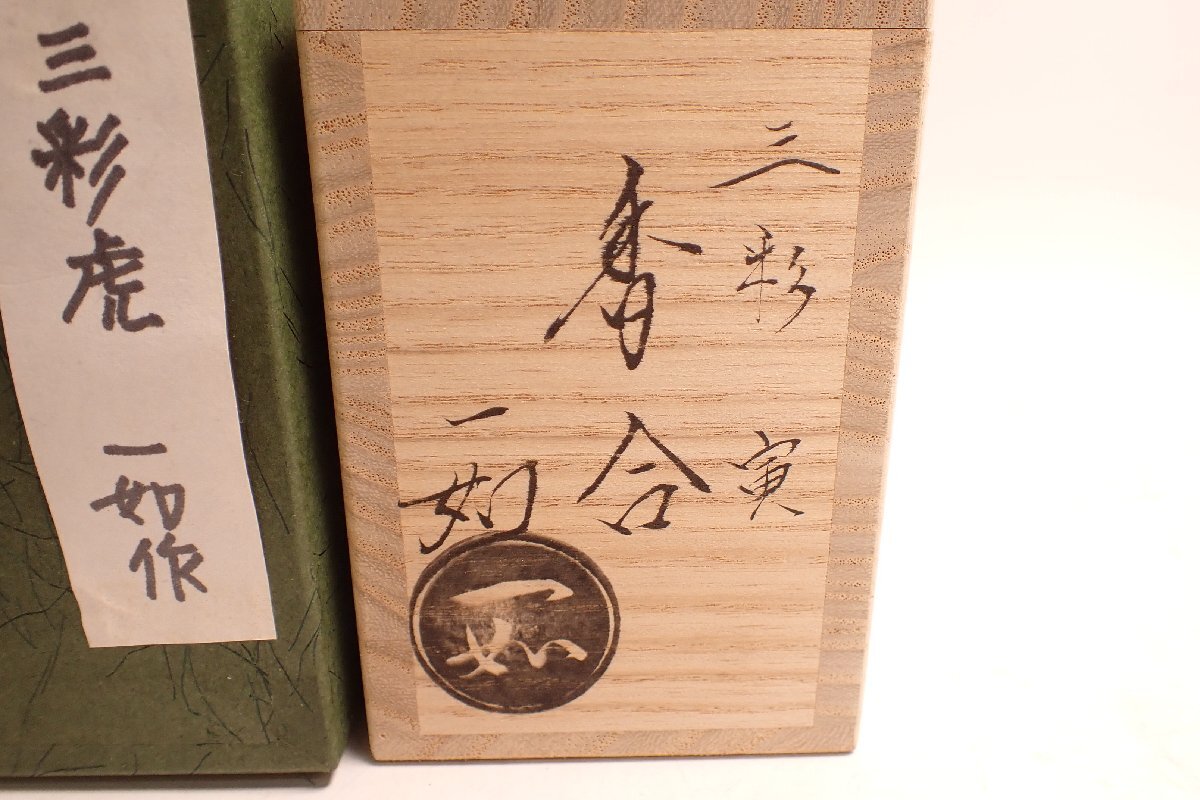 三彩虎 一如作
三彩 寅
香合
一如
一如